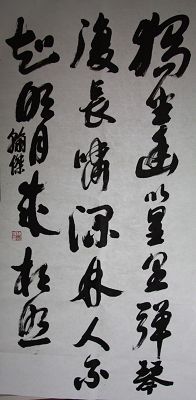 獨坐幽篁里彈琴
復長嘯深林人不
知明月來相照
翰傑